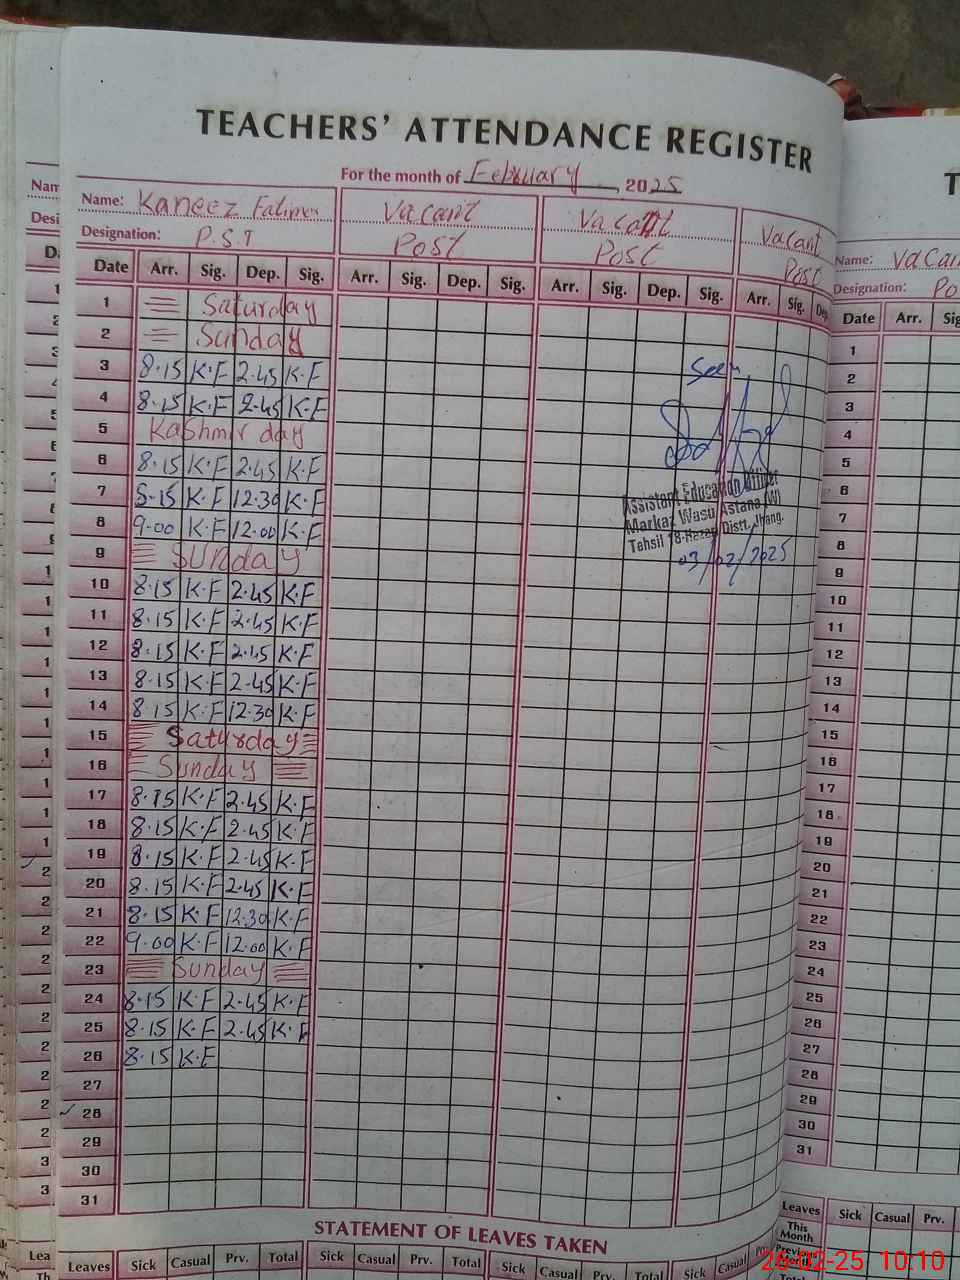 TEACHERS' ATTENDANCE REGISTER
For the month of February, 2025
Name: Kaneez Fatima Vacant Vacant Vacant
Designation: P.S.T Post Post Post
Date Arr. Sig. Dep. Sig. Arr. Sig. Dep. Sig. Arr. Sig. Dep. Sig. Arr. Sig. Dep.
1 Saturday
2 Sunday
3 8.15 K.F 2.45 K.F
4 8.15 K.F 2.45 K.F
5 Kashmir day
6 8.15 K.F 2.45 K.F
7 8.15 K.F 12.30 K.F
8 9.00 K.F 12.00 K.F
9 Sunday
10 8.15 K.F 2.45 K.F
11 8.15 K.F 2.45 K.F
12 8.15 K.F 2.45 K.F
13 8.15 K.F 2.45 K.F
14 8.15 K.F 12.30 K.F
15 Saturday
16 Sunday
17 8.15 K.F 2.45 K.F
18 8.15 K.F 2.45 K.F
19 8.15 K.F 2.45 K.F
20 8.15 K.F 2.45 K.F
21 8.15 K.F 12.30 K.F
22 9.00 K.F 12.00 K.F
23 Sunday
24 8.15 K.F 2.45 K.F
25 8.15 K.F 2.45 K.F
26 8.15 K.F
27
28
29
30
31
Seen
Assistant Education Officer
Markaz Wasu Astana (W)
Tehsil 18-Hazari Distt. Jhang.
03/02/2025
STATEMENT OF LEAVES TAKEN
Leaves Sick Casual Prv. Total Sick Casual Prv. Total Sick Casual Prv. Total Sick Casual
Name: Vacan
Designation: Po
Date Arr. Sig
1
2
3
4
5
6
7
8
9
10
11
12
13
14
15
16
17
18
19
20
21
22
23
24
25
26
27
28
29
30
31
Leaves Sick Casual Prv.
This
Month
26-02-25 10:10